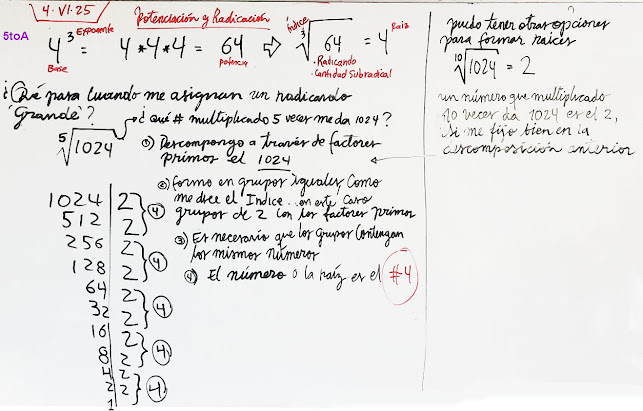 4·VI·25
Potenciación y Radicación
5toA
4³ = 4*4*4 = 64 ⇒ ³√64 = 4
Exponente
Base
potencia
Índice
Raíz
·Radicando
·Cantidad Subradical
¿Qué pasa cuando me asignan un radicando
"Grande"?
⁵√1024
¿Qué # multiplicado 5 veces me da 1024?
① Descompongo a través de factores
primos el 1024
② formo en grupos iguales, como
me dice el Índice... en este caso
grupos de 2 con los factores primos
③ Es necesario que los grupos contengan
los mismos números
④ El número o la raíz es el #4
1024 2
512 2
4
256 2
128 2
4
64 2
32 2
4
16 2
8 2
4
4 2
2 2
4
1
puedo tener otras opciones
para formar raíces?
¹⁰√1024 = 2
un número que multiplicado
10 veces da 1024 es el 2,
si me fijo bien en la
descomposición anterior